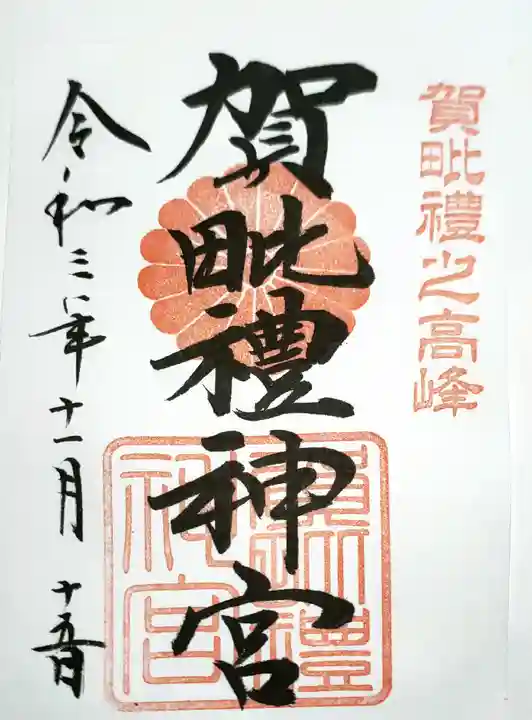 賀毗禮之高峰
賀毗禮神宮
賀毗禮神宮
令和三年十一月十五日